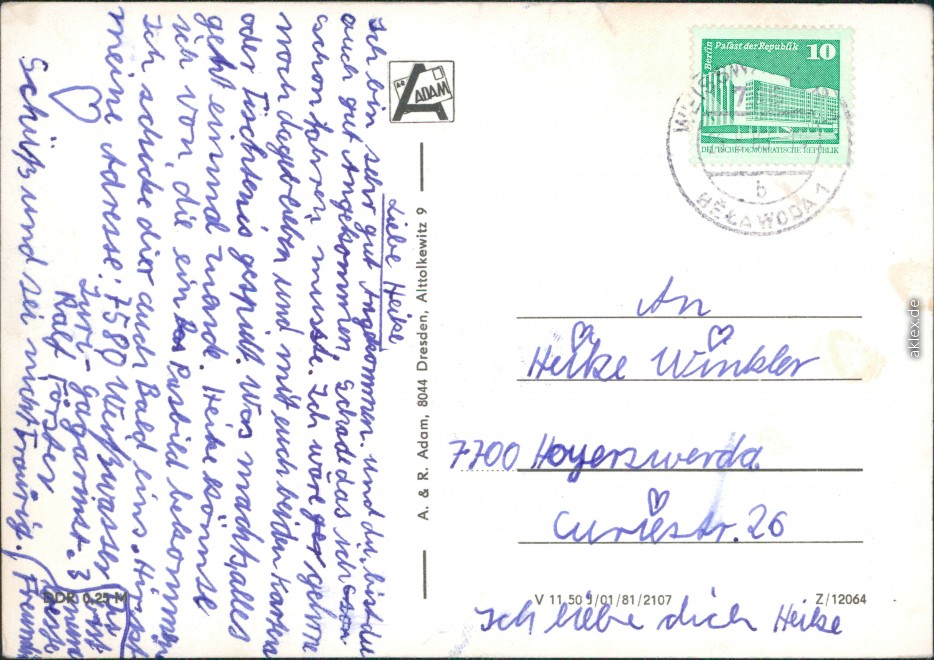 Liebe Heike,
Ich bin sehr gut Angekommen. und du bist du
auch gut Angekommen. Schad das ich
schon fahren muste. Ich wäre gehrne
noch dageblieben und mit euch beiden Karten
oder Tischtenis gespielt. Was macht Galles
geht einund mank. Heike könnse
ich von die ein Pasbild bekommen
Ich schicke dier auch Bald eins. Hir ist
meine Adresse: 7580 Weißwasser
Juri-gagarinst. 3
Ralf Förster
Schüß und sei nicht Traurig.
A. & R. Adam, 8044 Dresden, Alttolkewitz 9
A&R
ADAM
DDR 0,25 M
Berlin Palast der Republik
10
DEUTSCHE DEMOKRATISCHE REPUBLIK
7
b
BĚŁA WODA 1
An
Heike Winkler
7700 Hoyerswerda
Curiestr. 26
V 11.50 J/01/81/2107
Z/12064
Ich liebe dich Heike
aklex.de